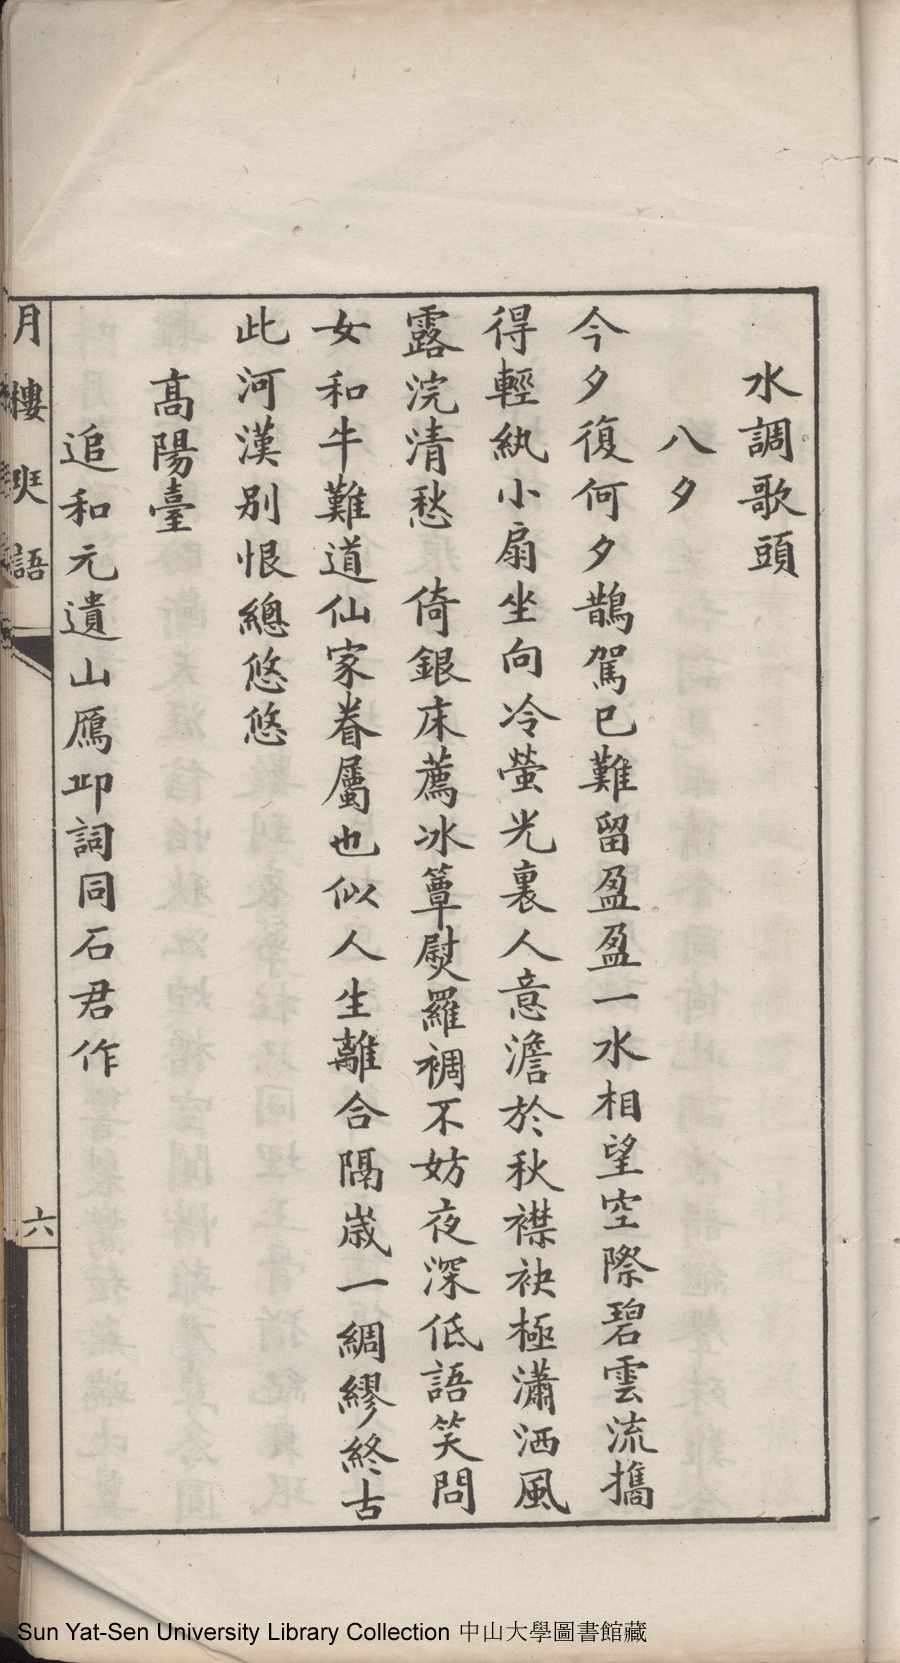 水調歌頭
八夕
今夕復何夕鵲駕已難留盈盈一水相望空際碧雲流攜
得輕紈小扇坐向冷螢光裏人意澹於秋襟袂極瀟洒風
露浣清愁 倚銀床薦冰簟熨羅裯不妨夜深低語笑問
女和牛難道仙家眷屬也似人生離合隔歲一綢繆終古
此河漢別恨總悠悠
高陽臺
追和元遺山鴈邱詞同石君作
月樓琰語
六
Sun Yat-Sen University Library Collection 中山大學圖書館藏